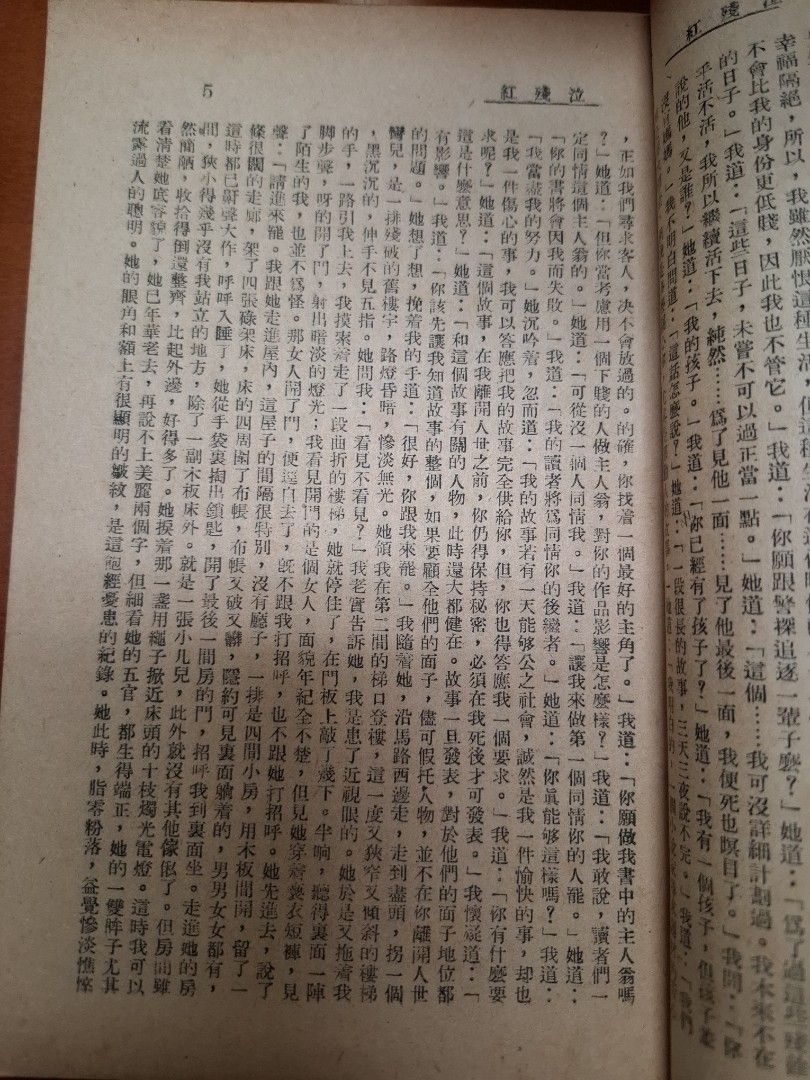 泣殘紅
幸福隔絕，所以，我雖然厭恨這種生活，但這種
不會比我的身份更低賤，因此我也不管它。」我道：「你願跟警探追一輩子麼？」她道：「爲了過這些殘餘
的日子。」我道：「這些日子，未嘗不可以過正當一點。」她道：「這個……我可沒詳細計劃過。我本來不在
乎活不活，我所以繼續活下去，純然……爲了見他一面……見了他最後一面，我便死也瞑目了。」我問：「你
說的他，又是誰？」她道：「我的孩子。」我道：「你已經有了孩子了？」她道：「我有一個孩子，但孩子是
媽媽。」我不明白問道：「這話怎麼說？」她道：「一段很長的故事，三天三夜說不完。」我道：「我們
泣殘紅
5
，正如我們尋求客人，决不會放過的。的確，你找着一個最好的主角了。」我道：「你願做我書中的主人翁嗎
？」她道：「但你當考慮用一個下賤的人做主人翁，對你的作品影響是怎麼樣？」我道：「我敢說，讀者們一
定同情這個主人翁的。」她道：「可從沒一個人同情我。」我道：「讓我來做第一個同情你的人罷。」她道：
「你的書將會因我而失敗。」我道：「我的讀者將爲同情你的後繼者。」她道：「你眞能够這樣嗎？」我道：
「我當盡我的努力。」她沉吟着，忽而道：「我的故事若有一天能够公之社會，誠然是我一件愉快的事，却也
是我一件傷心的事，我可以答應把我的故事完全供給你，但，你也得答應我一個要求。」我道：「你有什麼要
求呢？」她道：「這個故事，在我離開人世之前，你仍得保持秘密，必須在我死後才可發表。」我懷疑道：「
這是什麼意思？」她道：「和這個故事有關的人物，此時還大都健在。故事一旦發表，對於他們的面子地位都
有影響。」我道：「你該先讓我知道故事的整個，如果要顧全他們的面子，儘可假托人物，並不在你離開人世
的問題。」她想了想，挽着我的手道：「很好，你跟我來罷。」我隨着她，沿馬路西邊走，走到盡頭，拐一個
彎兒，是一排殘破的舊樓宇，路燈昏暗，慘淡無光。她領我在第二間的梯口登樓，這一度又狹窄又傾斜的樓梯
，黑沉沉的，伸手不見五指。她問我：「看見不看見？」我老實告訴她，我是患了近視眼的。她於是又拖着我
的手，一路引我上去，我摸索着走了一段曲折的樓梯，她就停住了，在門板上敲了幾下。半晌，聽得裏面一陣
脚步聲，呀的開了門，射出暗淡的燈光；我看見開門的是個女人，面貌年紀全不楚，但見她穿着褻衣短褲，見
了陌生的我，也並不爲怪。那女人開了門，便逕自去了，旣不跟我打招呼，也不跟她打招呼。她先進去，說了
聲：「請進來罷。」我跟她走進屋內，這屋子的間隔很特別，沒有廳子，一排是四間小房，用木板間開，留了一
條很闊的走廊，架了四張碌架床，床的四周圍了布帳，布帳又破又髒，隱約可見裏面躺着的，男男女女都有，
這時都已鼾聲大作，呼呼入睡了，她從手袋裏掏出鎖匙，開了最後一間房的門，招呼我到裏面坐。走進她的房
間，狹小得幾乎沒有我站立的地方，除了一副木板床外。就是一張小几兒，此外就沒有其他傢俬了。但房間雖
然簡陋，收拾得倒還整齊，比起外邊，好得多了。她揆着那一盞用繩子掀近床頭的十枝燭光電燈。這時我可以
看淸楚她底容貌了，她已年華老去，再說不上美麗兩個字，但細看她的五官，都生得端正，她的一雙眸子尤其
流露過人的聰明。她的眼角和額上有很顯明的皺紋，是這飽經憂患的紀錄。她此時，脂零粉落，益覺慘淡憔悴